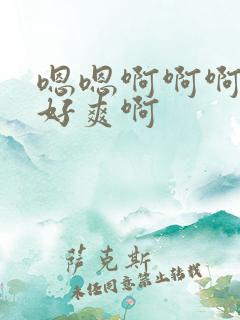 嗯嗯啊啊啊
好爽啊
萨克斯
未经同意禁止转载